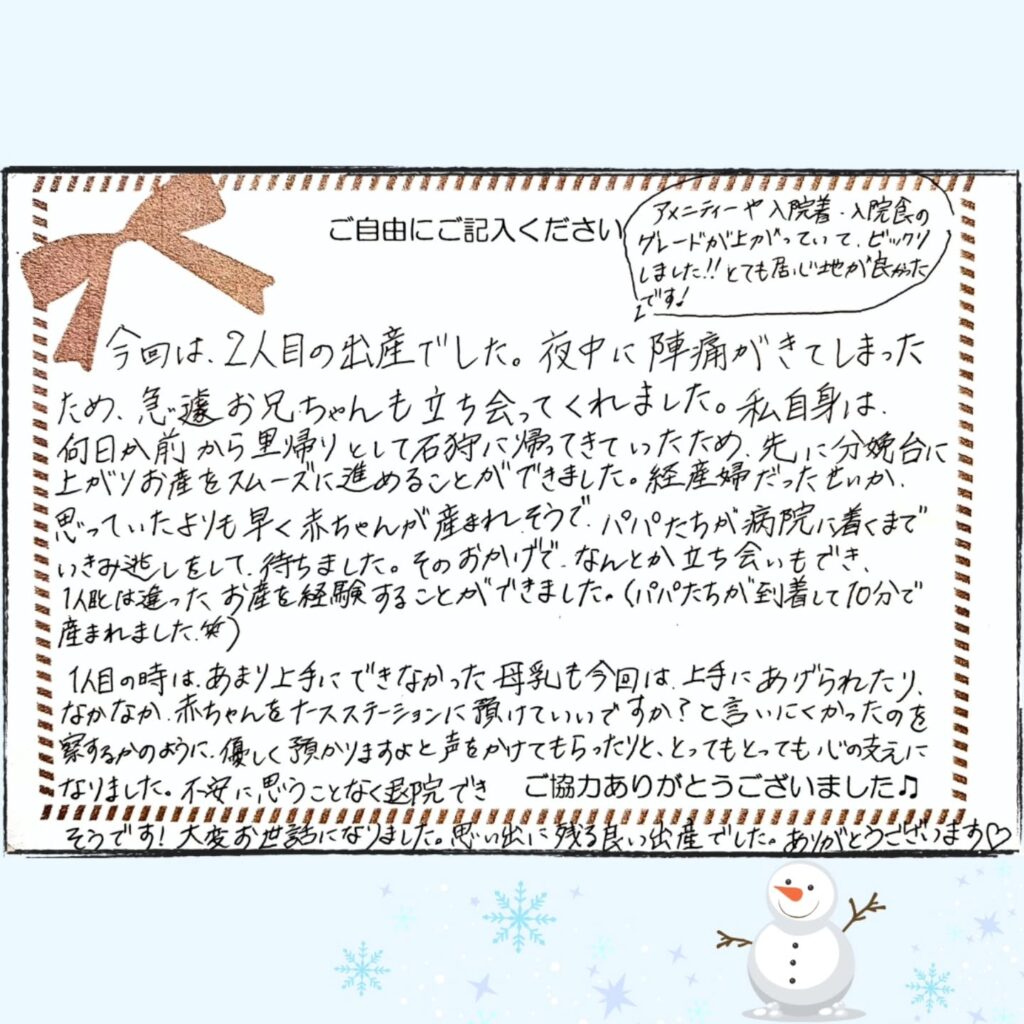 ご自由にご記入ください
アメニティーや入院着・入院食の
グレードが上がっていて、ビックリ
しました!!とても居心地が良かった
です!
今回は、2人目の出産でした。夜中に陣痛がきてしまった
ため、急遽お兄ちゃんも立ち会ってくれました。私自身は、
何日か前から里帰りとして石狩に帰ってきていたため、先に分娩台に
上がりお産をスムーズに進めることができました。経産婦だったせいか、
思っていたよりも早く赤ちゃんが産まれそうで、パパたちが病院に着くまで
いきみ逃しをして、待ちました。そのおかげで、なんとか立ち会いもでき、
1人目とは違った、お産を経験することができました。(パパたちが到着して10分で
産まれました、笑)
1人目の時は、あまり上手にできなかった母乳も今回は、上手にあげられたり、
なかなか、赤ちゃんをナースステーションに預けていいですか?と言いにくかったのを
察するかのように、優しく預かりますよと声をかけてもらったりと、とってもとっても心の支えに
なりました。不安に思うことなく退院でき
ご協力ありがとうございました♫
そうです!大変お世話になりました。思い出に残る良い出産でした。ありがとうございます♡